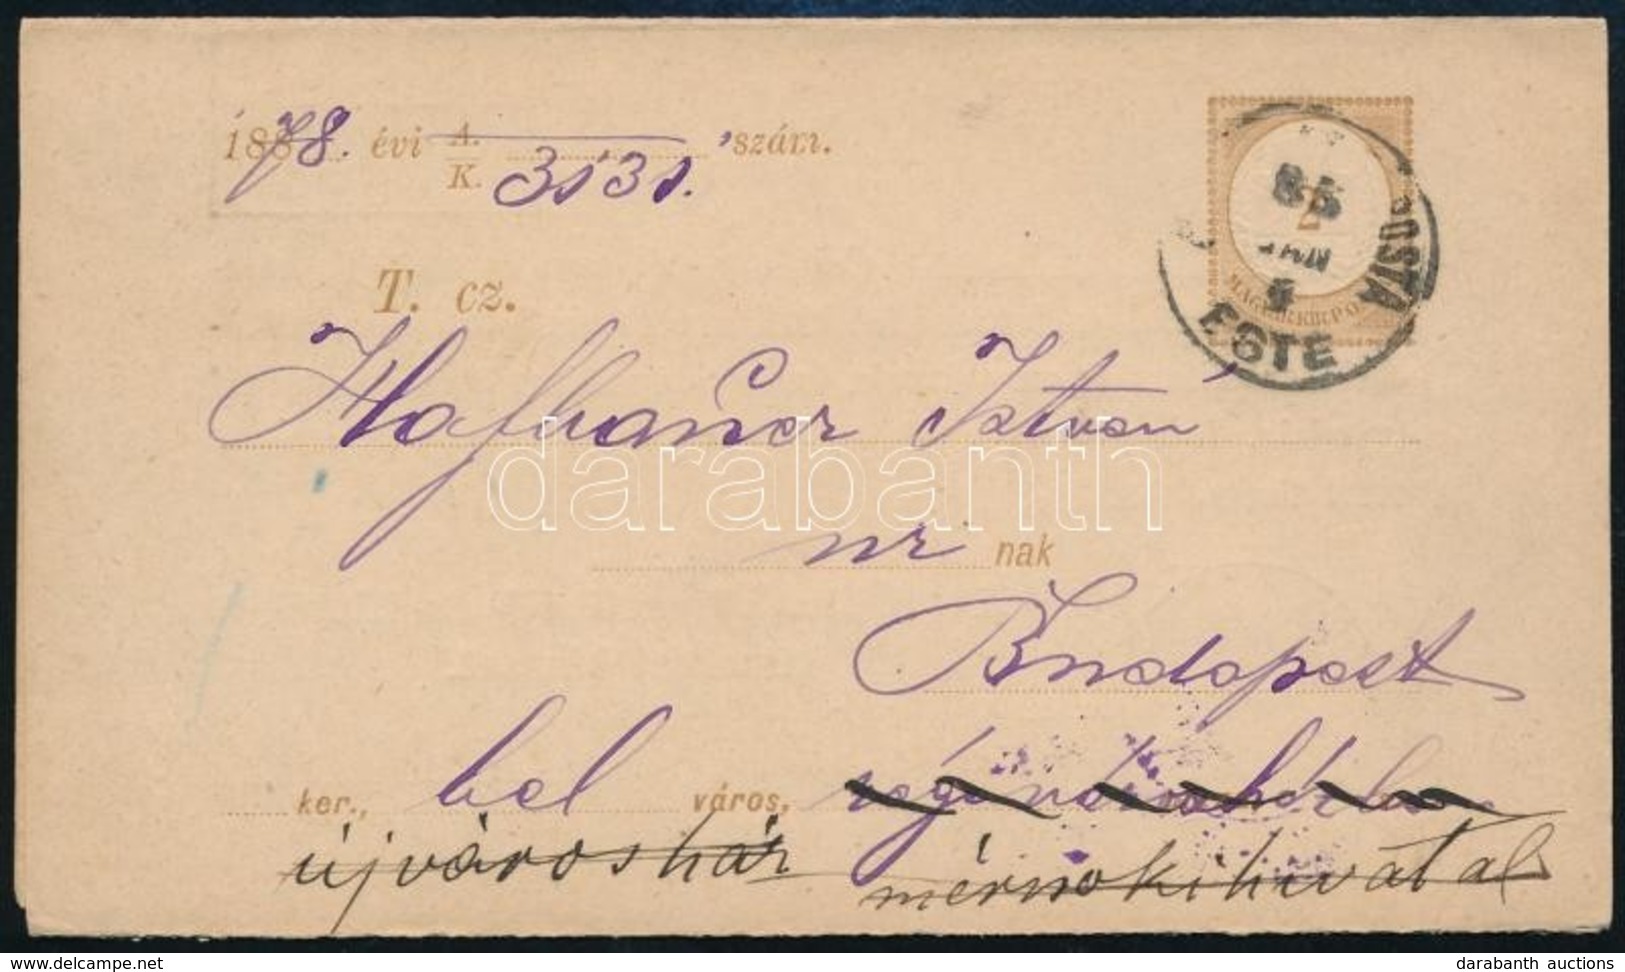 1878. évi A./K. 3531. szám.
T. cz.
István
úr nak
Budapest
ker., bel város, régi városházba
újvárosház mérnöki hivatal
85
2
MAGYAR KIR. POSTA
POSTA
ESTE
darabanth
www.delcampe.net
darabanth auctions